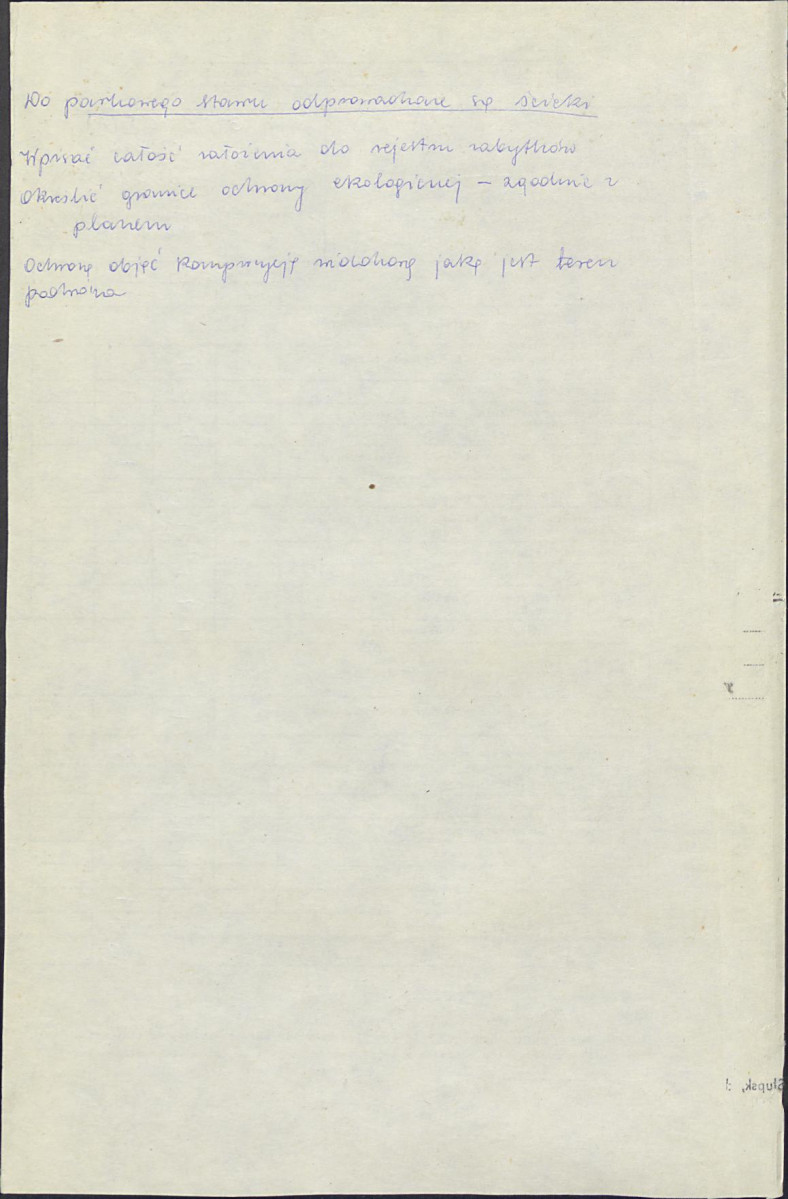 Do parkowego stawu odprowadzane są ścieki
Wpisać całość założenia do rejestru zabytków
Określić granice ochrony ekologicznej – zgodnie z
planem
Ochroną objąć kompozycję widokową jaką jest teren
podwórza
Słupsk,